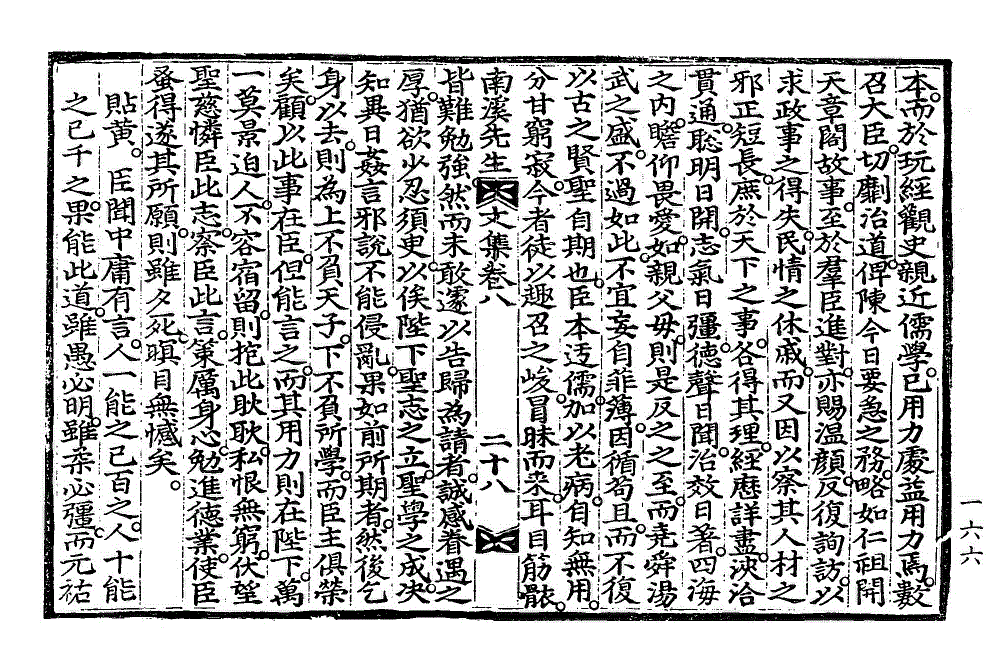 本而於玩經觀史親近儒學已用力處益用力焉數
召大臣切劘治道俾陳今日要急之務略如仁祖開
天章閣故事至於羣臣進對亦賜溫顏反復詢訪以
求政事之得失民情之休戚而又因以察其人材之
邪正短長庶於天下之事各得其理經歷詳盡浹洽
貫通聰明日開志氣日彊德聲日聞治效日著四海
之內瞻仰畏愛如親父母則是反之之至而堯舜湯
武之盛不過如此不宜妄自菲薄因循苟且而不復
以古之賢聖自期也臣本迂儒加以老病自知無用
分甘窮寂今者徒以趣召之峻冒昧而來耳目筋骸
南溪先生文集卷八 二十八
皆難勉強然而未敢遽以告歸為請者誠感眷遇之
厚猶欲少忍須臾以俟陛下聖志之立聖學之成決
知異日姦言邪說不能侵亂果如前所期者然後乞
身以去則為上不負天子下不負所學而臣主俱榮
矣顧以此事在臣但能言之而其用力則在陛下萬
一莫景迫人不容宿留則抱此耿耿私恨無窮伏望
聖慈憐臣此志察臣此言策厲身心勉進德業使臣
蚤得遂其所願則雖夕死瞑目無憾矣
貼黃臣聞中庸有言人一能之己百之人十能
之己千之果能此道雖愚必明雖柔必彊而元祐
一六六